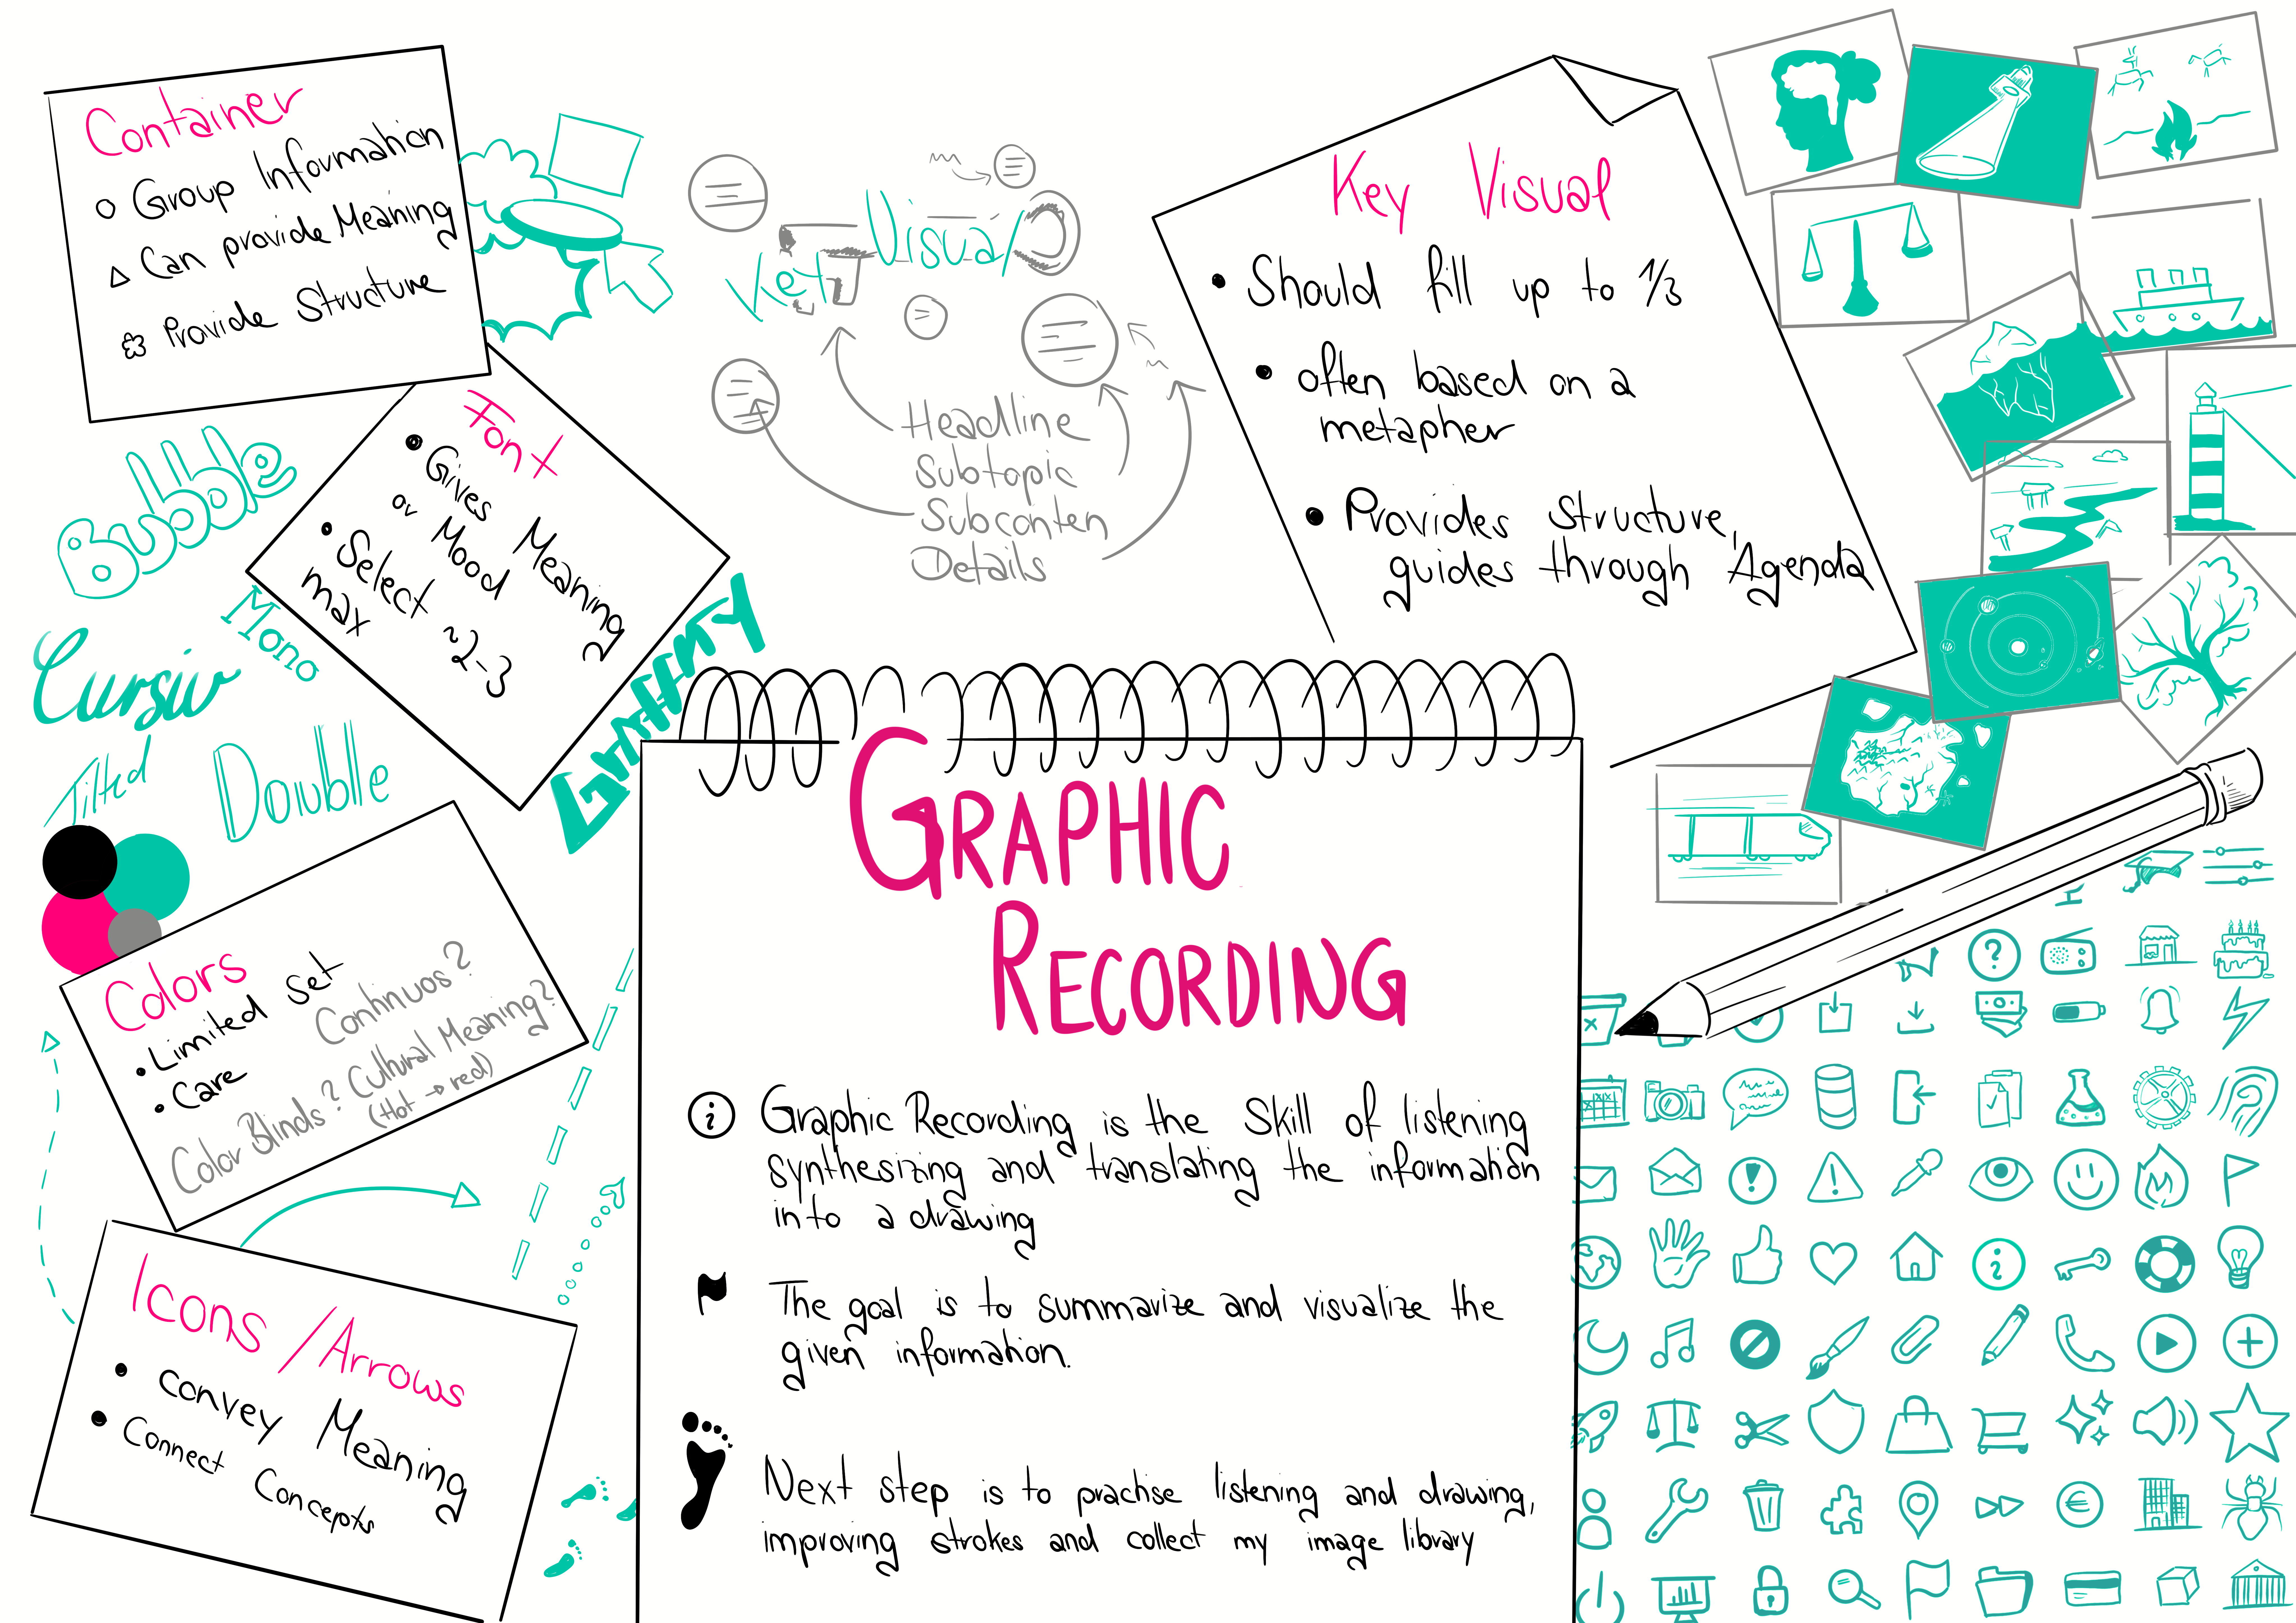 Container
Group Information
Can provide Meaning
Provide Structure
Font
Gives Meaning
or Mood
Select ~2-3
max
Bubble
Mono
Cursiv
Tilted
Double
Graffity
Colors
Limited Set
Care
Continuos?
Color Blinds? Cultural Meaning?
(Hot → red)
Icons / Arrows
convey Meaning
Connect Concepts
Key Visual
Headline
Subtopic
Subconten
Details
Key Visual
Should fill up to 1/3
often based on a
metapher
Provides structure,
guides through Agenda
GRAPHIC
RECORDING
Graphic Recording is the Skill of listening
synthesizing and translating the information
into a drawing
The goal is to summarize and visualize the
given information.
Next step is to practise listening and drawing,
improving strokes and collect my image library